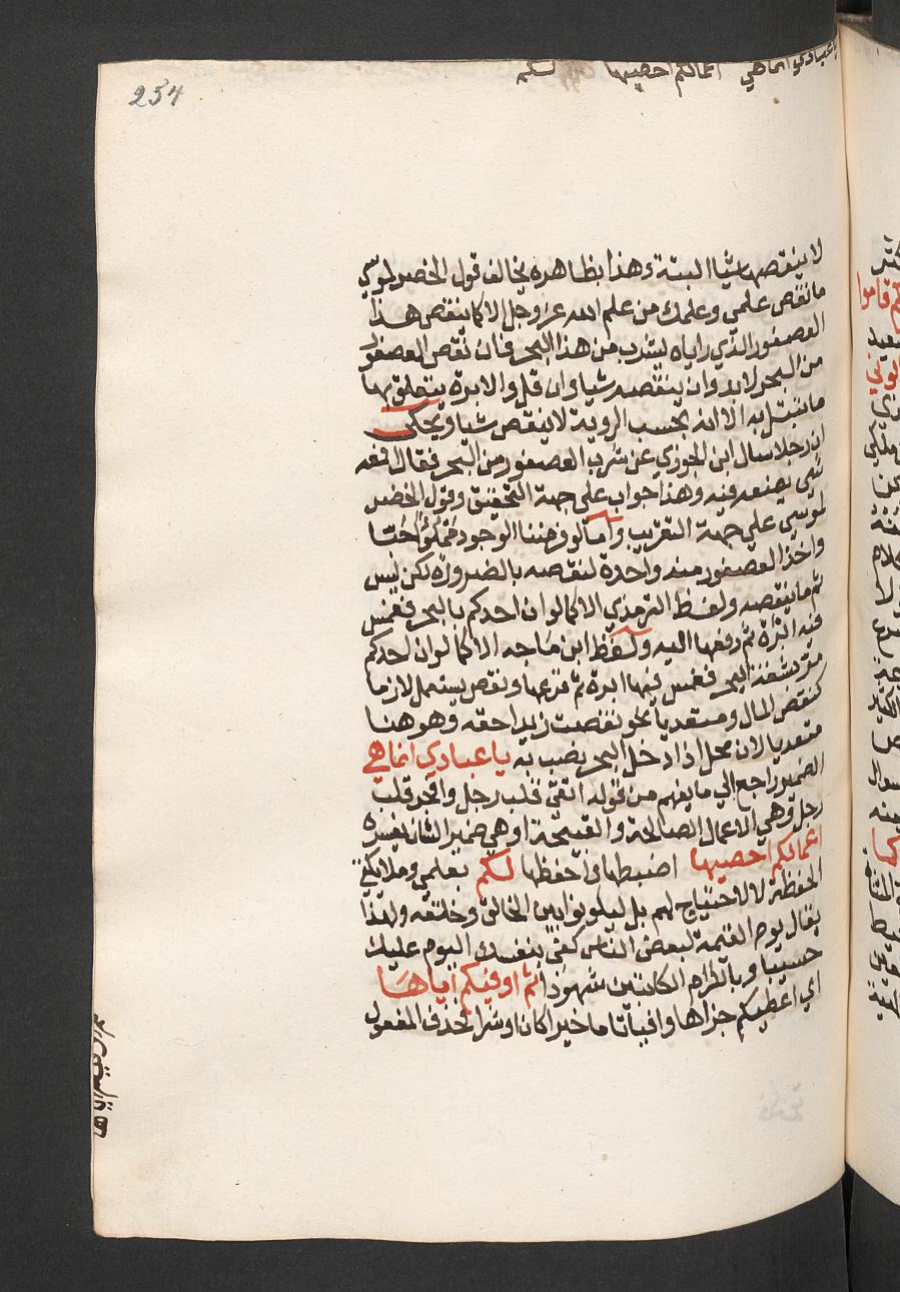 يا عبادي انما هي اعمالكم احصيها لكم
254
لا ينقصها شيا البتة وهذا بظاهره يخالف قول الخضر لموسي
ما نقص علمي وعلمك من علم الله عز وجل الا كما ينقص هذا
العصفور الذي راياه يشرب من هذا البحر فان نقص العصفور
من البحر لا بد وان ينقصه شيا وان قل والابرة يتعلق بها
ما يبتل به الا انه بحسب الروية لا ينقص شيا ويحكي
ان رجلا سال ابن الجوزي عن شرب العصفور من البحر فقال
شي يصنعه فيه وهذا جواب علي جهة التحقيق وقول الخضر
لموسي علي جهة التقريب واما لو فرضنا الوجود
واخذ العصفور منه واحدة لنقصه بالضرورة لكن ليس
ثم ما ينقصه ولفظ الترمذي الا كما لو ان احدكم بالبحر فغمس
فيه ابرة ثم رفعها اليه ولفظ ابن ماجه الا كما لو ان احدكم
مر بشفة البحر فغمس فيها ابرة ثم نزعها ونقص يستعمل لازما
كنقص المال ومتعديا نحو نقصت زيدا حقه وهو هنا
متعديا لان محل اذا دخل البحر نصب به يا عبادي انما هي
الضمير راجع الي ما يفهم من قوله اتقي قلب رجل وافجر قلب
رجل وهي الاعمال الصالحة والقبيحة او هي ضمير الشان يفسره
اعمالكم احصيها اضبطها اي احفظها لكم بعلمي وملايكتي
الحفظة لا لاحتياج لهم بل ليكونوا بين الخالق وخلقه ولهذا
يقال يوم القيمة لبعض الناس كفي بنفسك اليوم عليك
حسيبا وبالكرام الكاتبين شهودا ثم اوفيكم اياها
اي اعطيكم جزاها وافيا تاما خيرا كان او شرا فحذف المفعول
ثم اوفيكم اياها